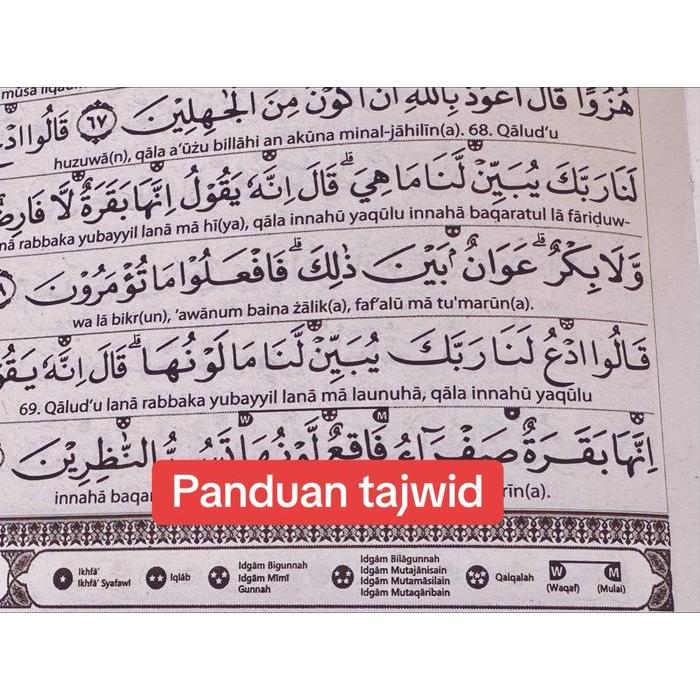 هُزُوًا قَالَ اَعُوْذُ بِاللّٰهِ اَنْ اَكُوْنَ مِنَ الْجٰهِلِيْنَ ٦٧ قَالُوا
huzuwā(n), qāla a‘ūżu billāhi an akūna minal-jāhilīn(a). 68. Qālud‘u
لَنَا رَبَّكَ يُبَيِّنْ لَّنَا مَا هِيَ ۗ قَالَ اِنَّهٗ يَقُوْلُ اِنَّهَا بَقَرَةٌ لَّا
rabbaka yubayyil lanā mā hī(ya), qāla innahū yaqūlu innahā baqaratul lā fāriḍuw-
وَّلَا بِكْرٌۗ عَوَانٌۢ بَيْنَ ذٰلِكَ ۗ فَافْعَلُوْا مَا تُؤْمَرُوْنَ
wa lā bikr(un), ‘awānum baina żālik(a), faf‘alū mā tu'marūn(a).
قَالُوا ادْعُ لَنَا رَبَّكَ يُبَيِّنْ لَّنَا مَا لَوْنُهَا ۗ قَالَ اِنَّهٗ
69. Qālud‘u lanā rabbaka yubayyil lanā mā launuhā, qāla innahū yaqūlu
اِنَّهَا بَقَرَةٌ صَفْرَاۤءُ فَاقِعٌ لَّوْنُهَا تَسُرُّ النّٰظِرِيْنَ
innahā
Panduan tajwid
Ikhfā’
Ikhfā’ Syafawī
Iqlāb
Idgām Bigunnah
Idgām Mīmī
Gunnah
Idgām Bilāgunnah
Idgām Mutajānisain
Idgām Mutamāsilain
Idgām Mutaqāribain
Qalqalah
W
(Waqaf)
M
(Mulai)